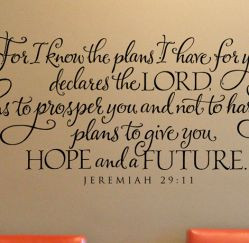 For I know the plans I have for
declares the LORD,
to prosper you and not to
plans to give you
HOPE and a FUTURE.
JEREMIAH 29:11